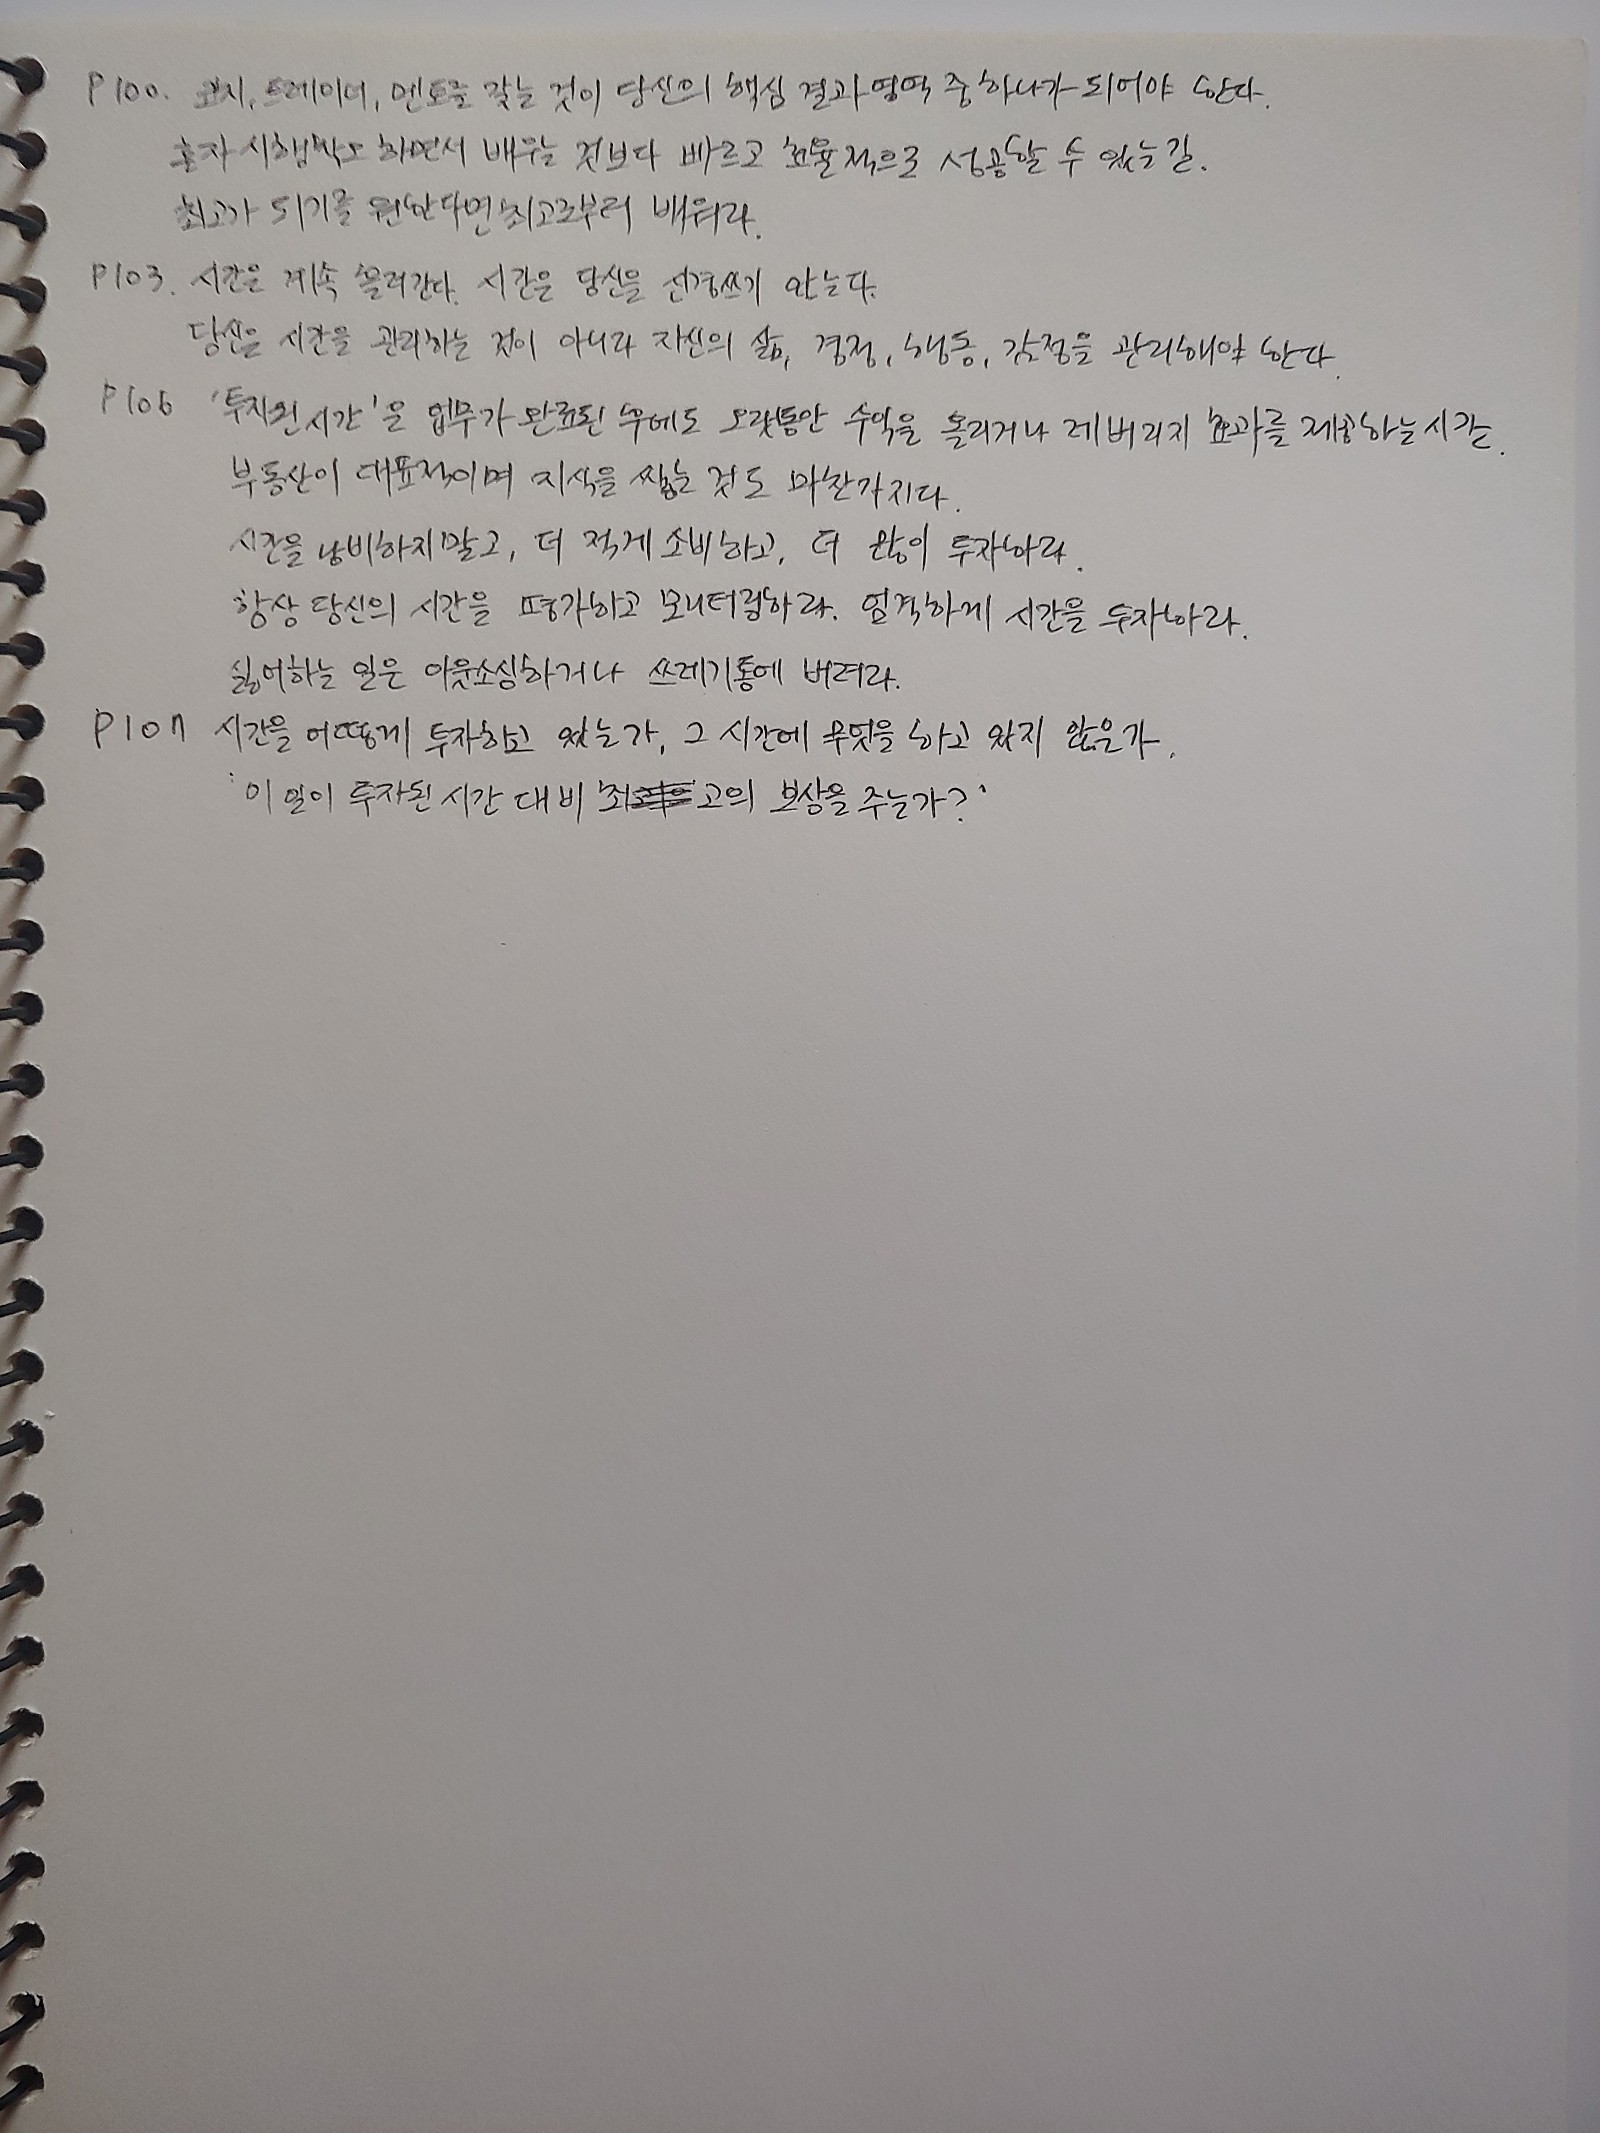 P100. 코치, 트레이너, 멘토를 갖는 것이 당신의 핵심 결과영역 중 하나가 되어야 한다.
혼자 시행착오 하면서 배우는 것보다 빠르고 효율적으로 성공할 수 있는 길.
최고가 되기를 원한다면 최고로부터 배워라.
P103. 시간은 계속 흘러간다. 시간은 당신을 신경쓰기 않는다.
당신은 시간을 관리하는 것이 아니라 자신의 삶, 결정, 행동, 감정을 관리해야 한다.
P106 '투자된 시간'은 업무가 완료된 후에도 오랫동안 수익을 올리거나 레버리지 효과를 제공하는 시간.
부동산이 대표적이며 지식을 쌓는 것도 마찬가지다.
시간을 낭비하지 말고, 더 적게 소비하고, 더 많이 투자하라.
항상 당신의 시간을 평가하고 모니터링하라. 엄격하게 시간을 투자하라.
싫어하는 일은 아웃소싱하거나 쓰레기통에 버려라.
P107 시간을 어떻게 투자하고 있는가, 그 시간에 무엇을 하고 있지 않은가.
'이 일이 투자된 시간 대비 최고의 보상을 주는가?'